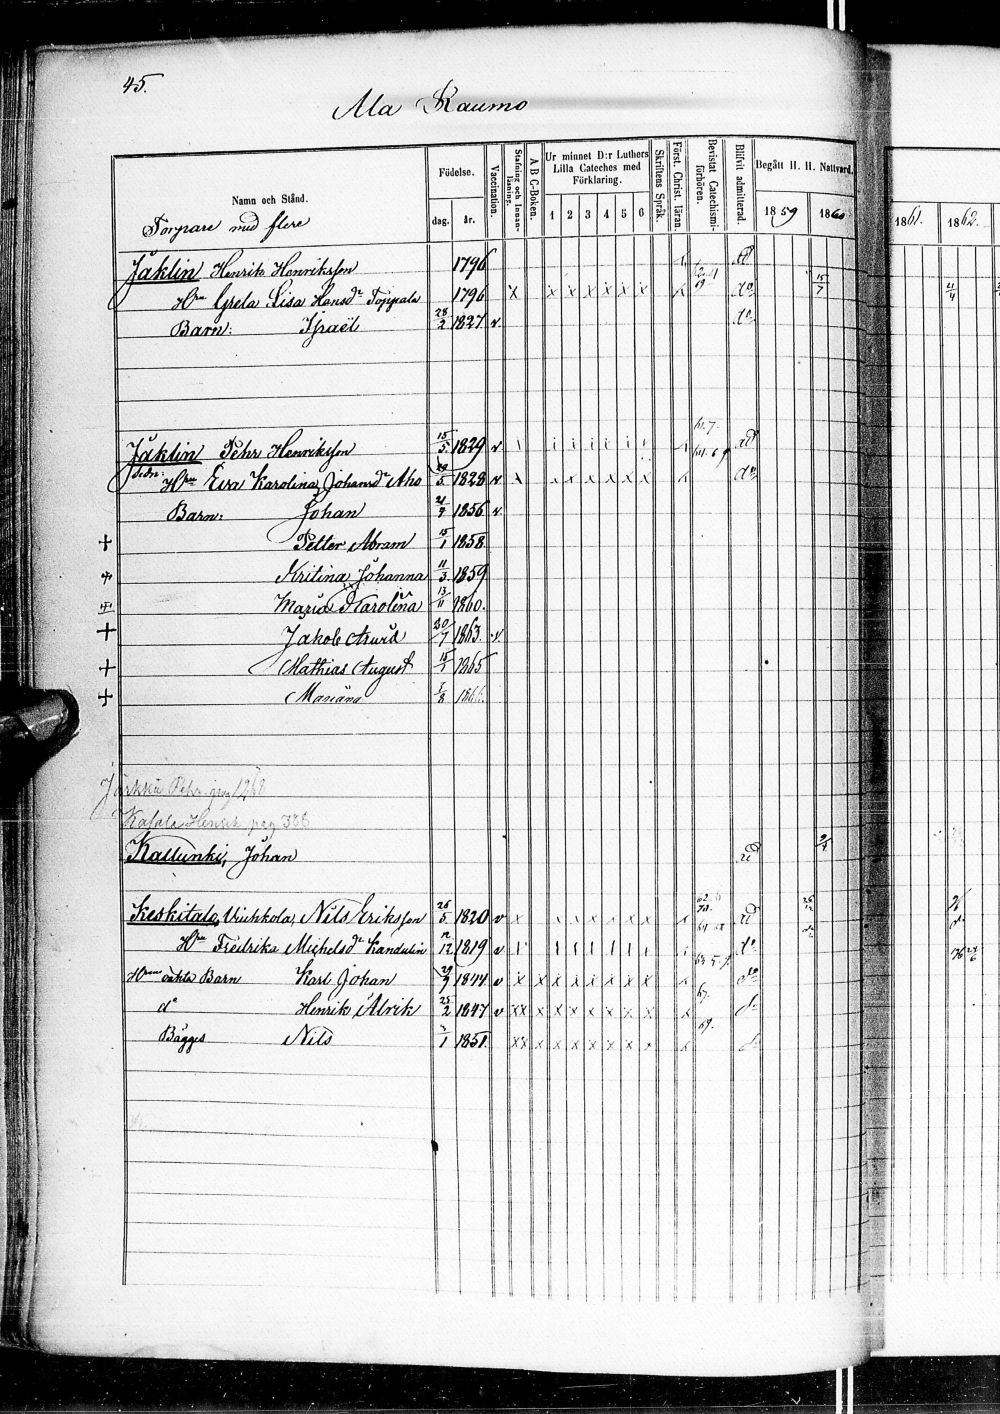 45.
Ala Raumo
Namn och Stånd.
Torpare med flere
Födelse.
dag. år.
Vaccination.
Stafning och Innan-läsning.
A B C-Boken.
Ur minnet D:r Luthers Lilla Cateches med Förklaring.
1 2 3 4 5 6
Skriftens Språk.
Först. Christ. läran.
Bevistat Catechismi-förhören.
Blifvit admitterad.
Begått H. H. Nattvard.
1859 1860 1861. 1862.
Jäklin Henrik Henriksson 1796 ad
Hru Greta Lisa Hansdr Toppala 1796 x x x x x x x x do 15/7
Barn: Israël 28/2 1827 v do
Jäklin Pehr Henriksson 15/5 1829 v ad
Hru Eva Karolina Johansdr Aho 29/5 1828 v do
Barn: Johan 21/9 1856 v
+ Petter Abram 15/1 1858
Kristina Johanna 11/3 1859
Maria Karolina 13/11 1860.
+ Jakob Arvid 20/7 1863. v
+ Mathias August 15/1 1865
+ Mariana 7/8 1866.
Kallunki, Johan ad
Keskitalo, Nils Eriksson 26/5 1820 v ad
Hru Fredrika Michelsdr Kandelin 12/12 1819 v do
Hruns oäkta Barn Karl Johan 29/9 1844 v x x x x x x x x do
do Henrik Alrik 25/2 1847 v xx x x x x x x x x do
Bägges Nils 3/1 1851. xx x x x x x x x x do